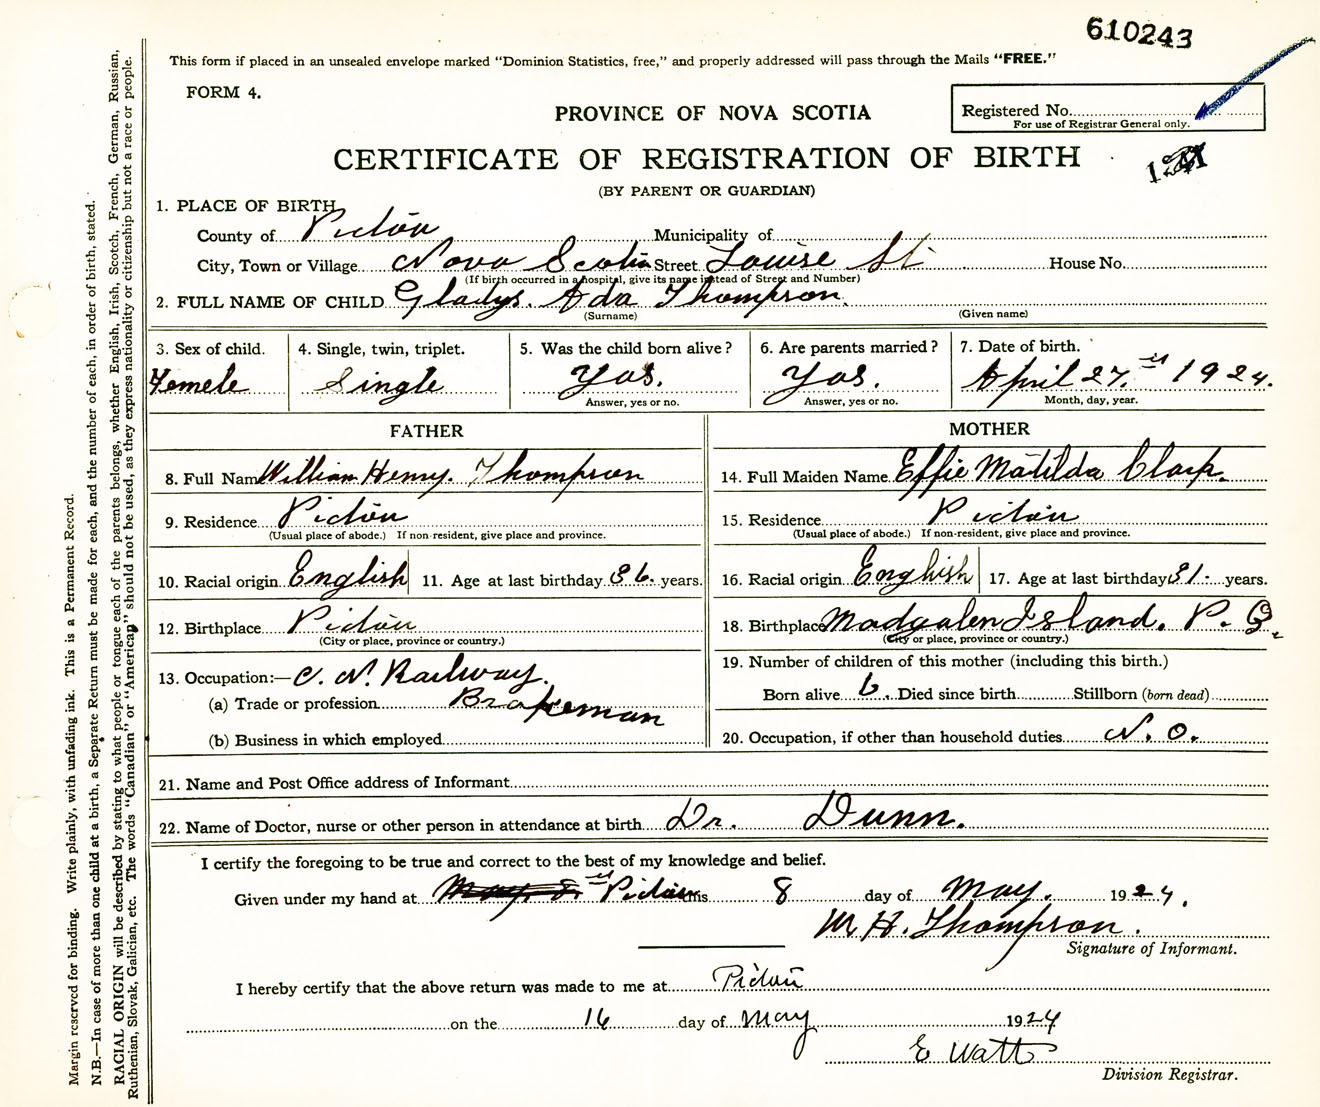 610243
This form if placed in an unsealed envelope marked "Dominion Statistics, free," and properly addressed will pass through the Mails "FREE."
FORM 4.
PROVINCE OF NOVA SCOTIA
Registered No.
For use of Registrar General only.
CERTIFICATE OF REGISTRATION OF BIRTH
(BY PARENT OR GUARDIAN)
1. PLACE OF BIRTH
County of Pictou Municipality of
City, Town or Village Nova Scotia Street Louise St House No.
(If birth occurred in a hospital, give its name instead of Street and Number)
2. FULL NAME OF CHILD Gladys. Ada Thompson.
(Surname) (Given name)
3. Sex of child. 4. Single, twin, triplet. 5. Was the child born alive? 6. Are parents married? 7. Date of birth.
Female Single Yas. Yas. April 27. 1924.
Answer, yes or no. Answer, yes or no. Month, day, year.
FATHER MOTHER
8. Full Name William Henry. Thompson 14. Full Maiden Name Effie Matilda
9. Residence Pictou 15. Residence Pictou
(Usual place of abode.) If non-resident, give place and province. (Usual place of abode.) If non-resident, give place and province.
10. Racial origin English 11. Age at last birthday 36. years. 16. Racial origin English 17. Age at last birthday 31. years.
12. Birthplace Pictou 18. Birthplace Madgalen Island. P. Q.
(City or place, province or country.) (City or place, province or country.)
13. Occupation:— C. N. Railway. 19. Number of children of this mother (including this birth.)
(a) Trade or profession Brakeman Born alive 6. Died since birth Stillborn (born dead)
(b) Business in which employed 20. Occupation, if other than household duties N. O.
21. Name and Post Office address of Informant
22. Name of Doctor, nurse or other person in attendance at birth Dr. Dunn.
I certify the foregoing to be true and correct to the best of my knowledge and belief.
Given under my hand at Pictou this 8 day of May. 1924.
H. Thompson.
Signature of Informant.
I hereby certify that the above return was made to me at Pictou
on the 16 day of May 1924
E Watt
Division Registrar.
Margin reserved for binding. Write plainly, with unfading ink. This is a Permanent Record.
N.B.—In case of more than one child at a birth, a Separate Return must be made for each, and the number of each, in order of birth, stated.
RACIAL ORIGIN will be described by stating to what people or tongue each of the parents belongs, whether English, Irish, Scotch, French, German, Russian,
Ruthenian, Slovak, Galician, etc. The words "Canadian" or "American" should not be used, as they express nationality or citizenship but not a race or people.